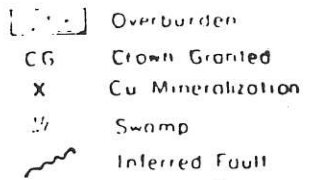 Overburden
CG Crown Granted
X Cu Mineralization
Swamp
Inferred Fault